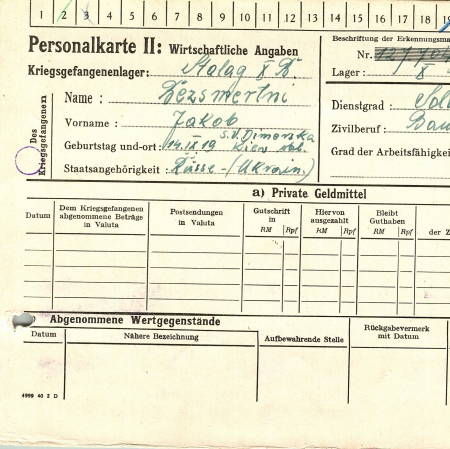 1 2 3 4 5 6 7 8 9 10 11 12 13 14 15 16 17 18
Personalkarte II: Wirtschaftliche Angaben
Kriegsgefangenenlager: Stalag X B.
Des Kriegsgefangenen
Name: Bezsmertni
Vorname: Jakob
S.V. Dimorska
Geburtstag und -ort: 14.IX.19 Kiew obl.
Staatsangehörigkeit: Russe - (Ukrain.)
Beschriftung der Erkennungsma
Nr.
Lager: X
Dienstgrad: Sol
Zivilberuf: Bau
Grad der Arbeitsfähigkei
a) Private Geldmittel
Datum
Dem Kriegsgefangenen abgenommene Beträge in Valuta
Postsendungen in Valuta
Gutschrift in
RM Rpf
Hiervon ausgezahlt
RM Rpf
Bleibt Guthaben
RM Rpf
der Z
Abgenommene Wertgegenstände
Datum
Nähere Bezeichnung
Aufbewahrende Stelle
Rückgabevermerk mit Datum
4999 40 2 D